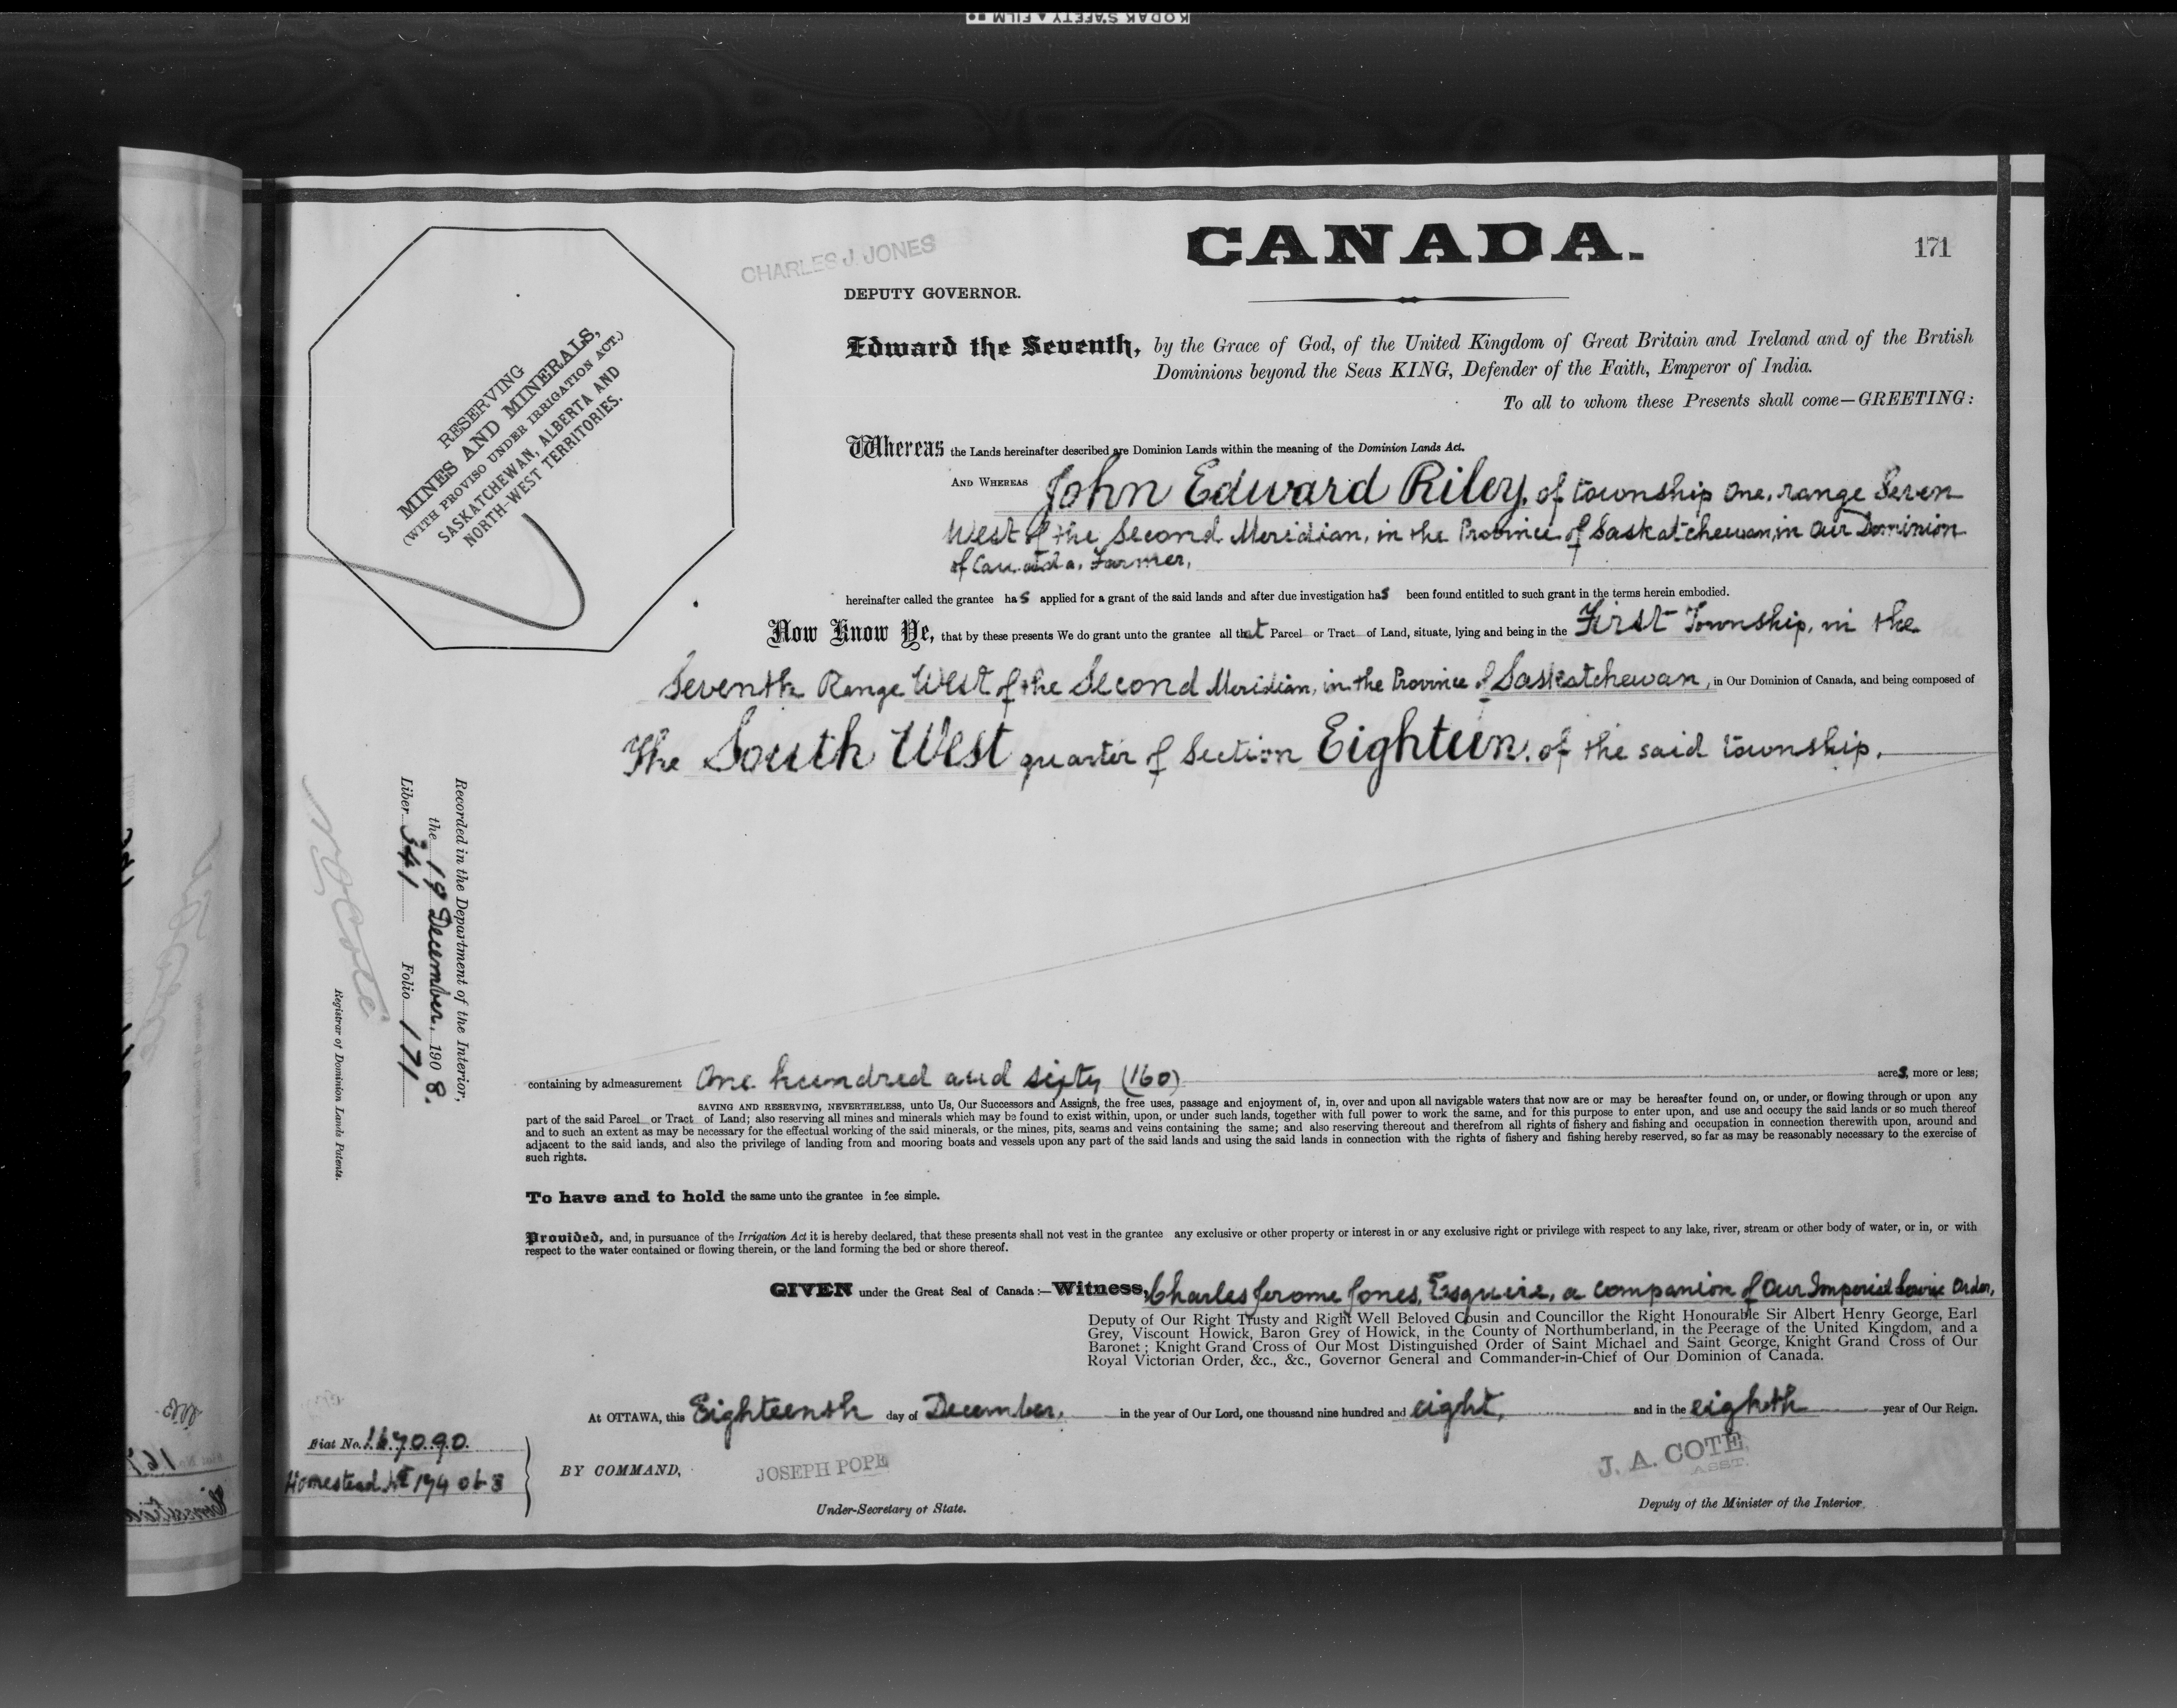 KODAK SAFETY ▲ FILM
CANADA.
171
CHARLES J. JONES
DEPUTY GOVERNOR.
RESERVING
MINES AND MINERALS,
(WITH PROVISO UNDER IRRIGATION ACT.)
SASKATCHEWAN, ALBERTA AND
NORTH-WEST TERRITORIES.
Edward the Seventh, by the Grace of God, of the United Kingdom of Great Britain and Ireland and of the British
Dominions beyond the Seas KING, Defender of the Faith, Emperor of India.
To all to whom these Presents shall come—GREETING:
Whereas the Lands hereinafter described are Dominion Lands within the meaning of the Dominion Lands Act.
AND WHEREAS John Edward Riley, of township one, range Seven
West of the Second Meridian, in the Province of Saskatchewan, in Our Dominion
of Canada, Farmer,
hereinafter called the grantee has applied for a grant of the said lands and after due investigation has been found entitled to such grant in the terms herein embodied.
Now Know Ye, that by these presents We do grant unto the grantee all that Parcel or Tract of Land, situate, lying and being in the First Township, in the
Seventh Range West of the Second Meridian, in the Province of Saskatchewan, in Our Dominion of Canada, and being composed of
The South West quarter of Section Eighteen, of the said township.
Recorded in the Department of the Interior,
the 19 December, 1908.
Liber 341 Folio 171
N O Coté
Registrar of Dominion Lands Patents.
containing by admeasurement One hundred and sixty (160) acres, more or less;
SAVING AND RESERVING, NEVERTHELESS, unto Us, Our Successors and Assigns, the free uses, passage and enjoyment of, in, over and upon all navigable waters that now are or may be hereafter found on, or under, or flowing through or upon any
part of the said Parcel or Tract of Land; also reserving all mines and minerals which may be found to exist within, upon, or under such lands, together with full power to work the same, and for this purpose to enter upon, and use and occupy the said lands or so much thereof
and to such an extent as may be necessary for the effectual working of the said minerals, or the mines, pits, seams and veins containing the same; and also reserving thereout and therefrom all rights of fishery and fishing and occupation in connection therewith upon, around and
adjacent to the said lands, and also the privilege of landing from and mooring boats and vessels upon any part of the said lands and using the said lands in connection with the rights of fishery and fishing hereby reserved, so far as may be reasonably necessary to the exercise of
such rights.
To have and to hold the same unto the grantee in fee simple.
Provided, and, in pursuance of the Irrigation Act it is hereby declared, that these presents shall not vest in the grantee any exclusive or other property or interest in or any exclusive right or privilege with respect to any lake, river, stream or other body of water, or in, or with
respect to the water contained or flowing therein, or the land forming the bed or shore thereof.
GIVEN under the Great Seal of Canada:—Witness, Charles Jerome Jones, Esquire, a companion of Our Imperial Service Order,
Deputy of Our Right Trusty and Right Well Beloved Cousin and Councillor the Right Honourable Sir Albert Henry George, Earl
Grey, Viscount Howick, Baron Grey of Howick, in the County of Northumberland, in the Peerage of the United Kingdom, and a
Baronet; Knight Grand Cross of Our Most Distinguished Order of Saint Michael and Saint George, Knight Grand Cross of Our
Royal Victorian Order, &c., &c., Governor General and Commander-in-Chief of Our Dominion of Canada.
At OTTAWA, this Eighteenth day of December, in the year of Our Lord, one thousand nine hundred and eight, and in the eighth year of Our Reign.
Fiat No. 167090
Homestead No
BY COMMAND,
JOSEPH POPE
Under-Secretary of State.
J. A. COTÉ,
ASST.
Deputy of the Minister of the Interior.